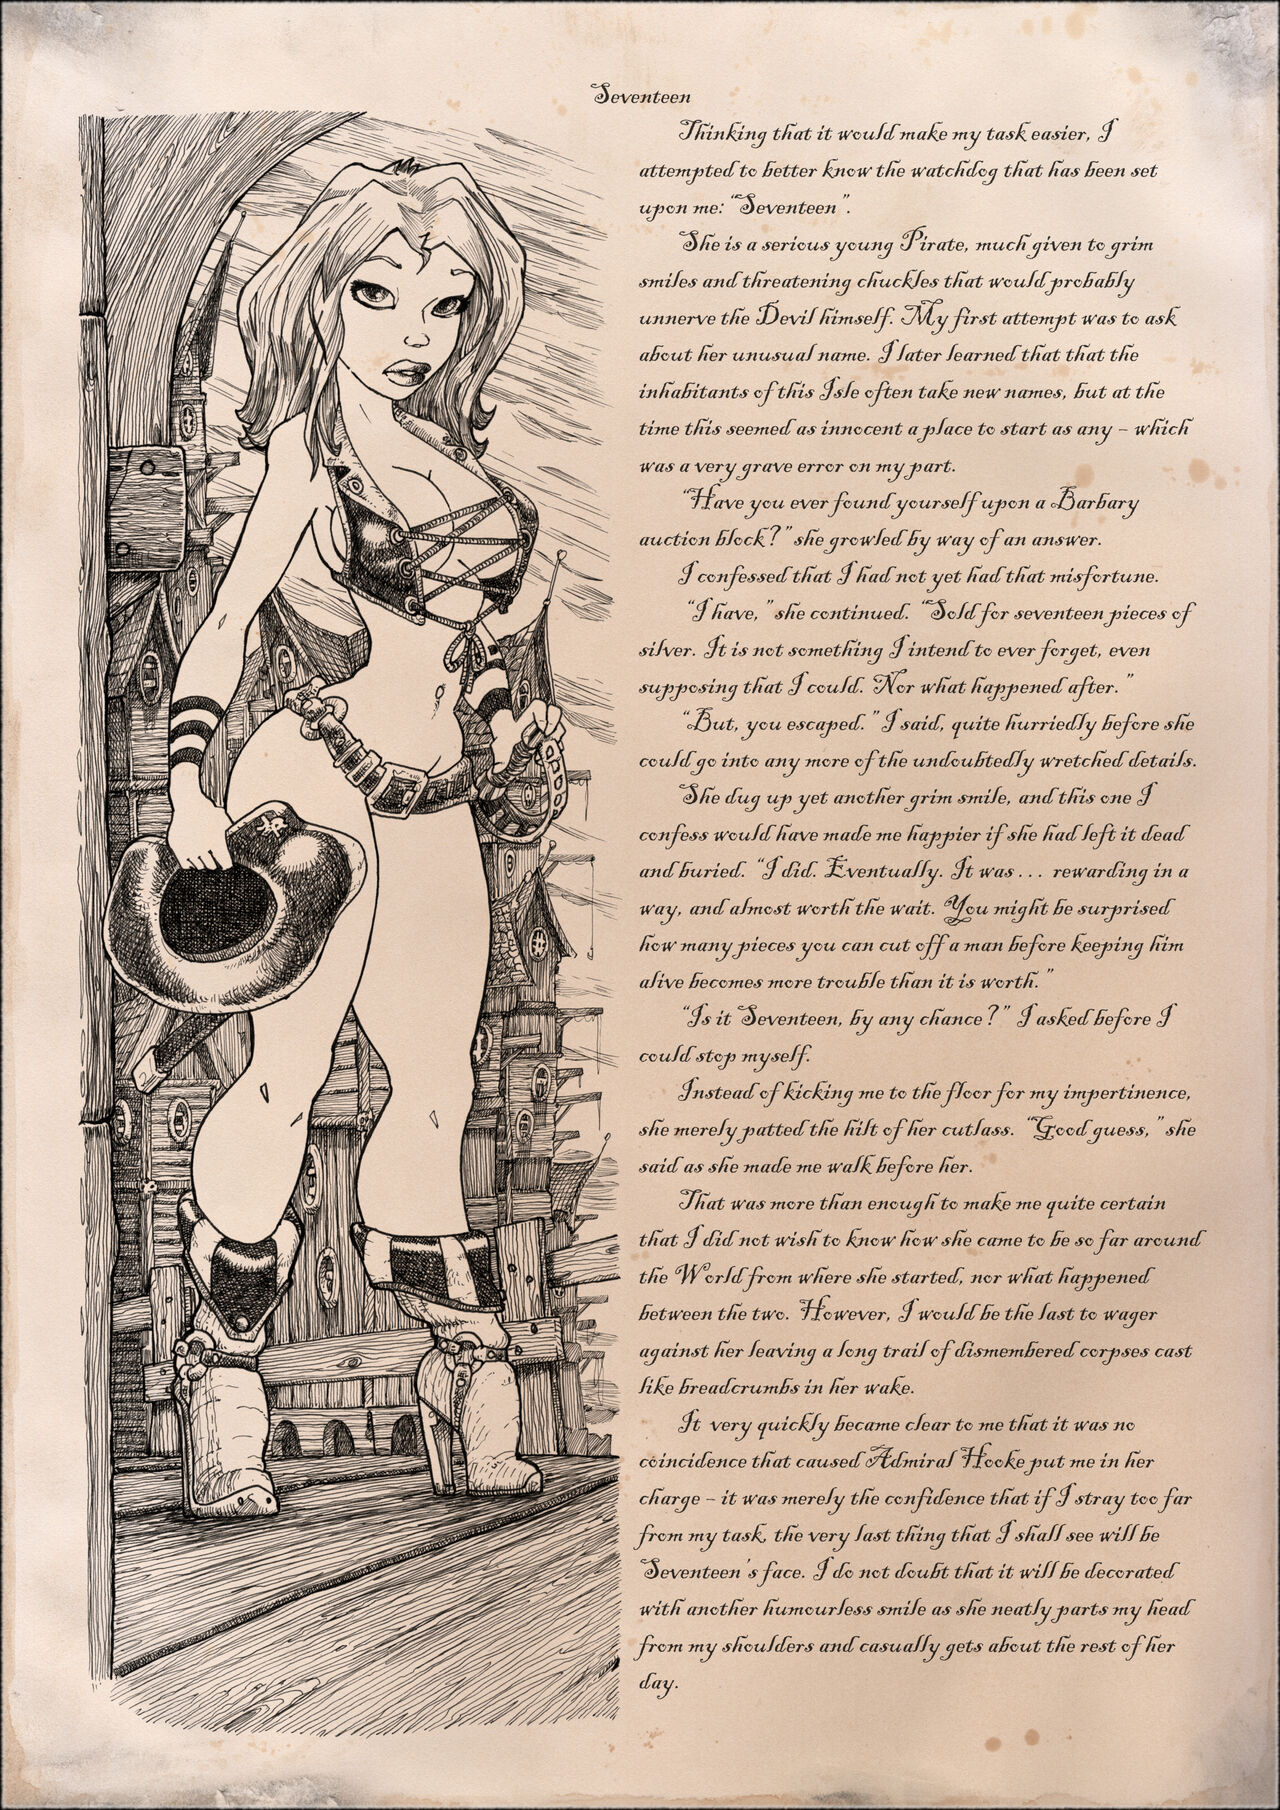 Seventeen
Thinking that it would make my task easier, I
attempted to better know the watchdog that has been set
upon me: "Seventeen".
She is a serious young Pirate, much given to grim
smiles and threatening chuckles that would probably
unnerve the Devil himself. My first attempt was to ask
about her unusual name. I later learned that that the
inhabitants of this Isle often take new names, but at the
time this seemed as innocent a place to start as any – which
was a very grave error on my part.
"Have you ever found yourself upon a Barbary
auction block?" she growled by way of an answer.
I confessed that I had not yet had that misfortune.
"I have," she continued. "Sold for seventeen pieces of
silver. It is not something I intend to ever forget, even
supposing that I could. Nor what happened after."
"But, you escaped." I said, quite hurriedly before she
could go into any more of the undoubtedly wretched details.
She dug up yet another grim smile, and this one I
confess would have made me happier if she had left it dead
and buried. "I did. Eventually. It was... rewarding in a
way, and almost worth the wait. You might be surprised
how many pieces you can cut off a man before keeping him
alive becomes more trouble than it is worth."
"Is it Seventeen, by any chance?" I asked before I
could stop myself.
Instead of kicking me to the floor for my impertinence,
she merely patted the hilt of her cutlass. "Good guess," she
said as she made me walk before her.
That was more than enough to make me quite certain
that I did not wish to know how she came to be so far around
the World from where she started, nor what happened
between the two. However, I would be the last to wager
against her leaving a long trail of dismembered corpses cast
like breadcrumbs in her wake.
It very quickly became clear to me that it was no
coincidence that caused Admiral Hooke put me in her
charge – it was merely the confidence that if I stray too far
from my task, the very last thing that I shall see will be
Seventeen's face. I do not doubt that it will be decorated
with another humourless smile as she neatly parts my head
from my shoulders and casually gets about the rest of her
day.